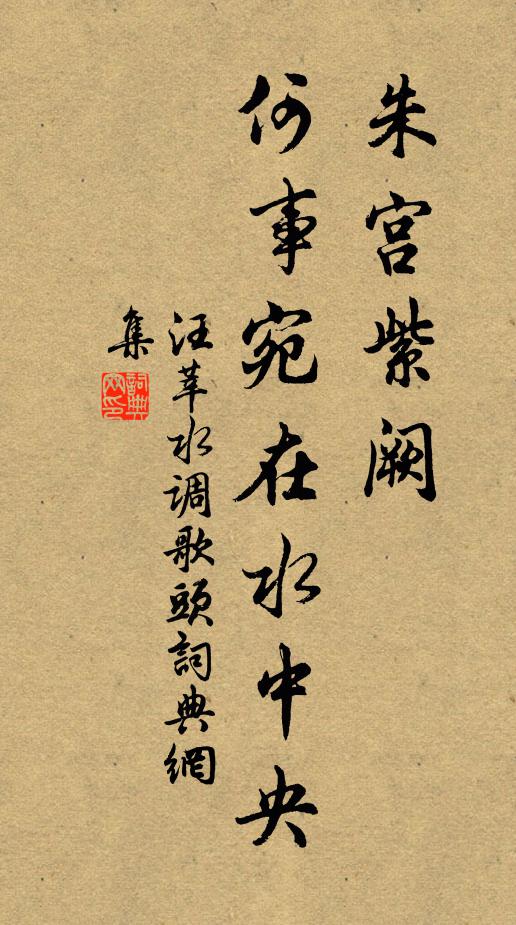 朱宫紫阙
何事宛在水中央
汪莘水调歌頭詞典網
集
詞典
网印